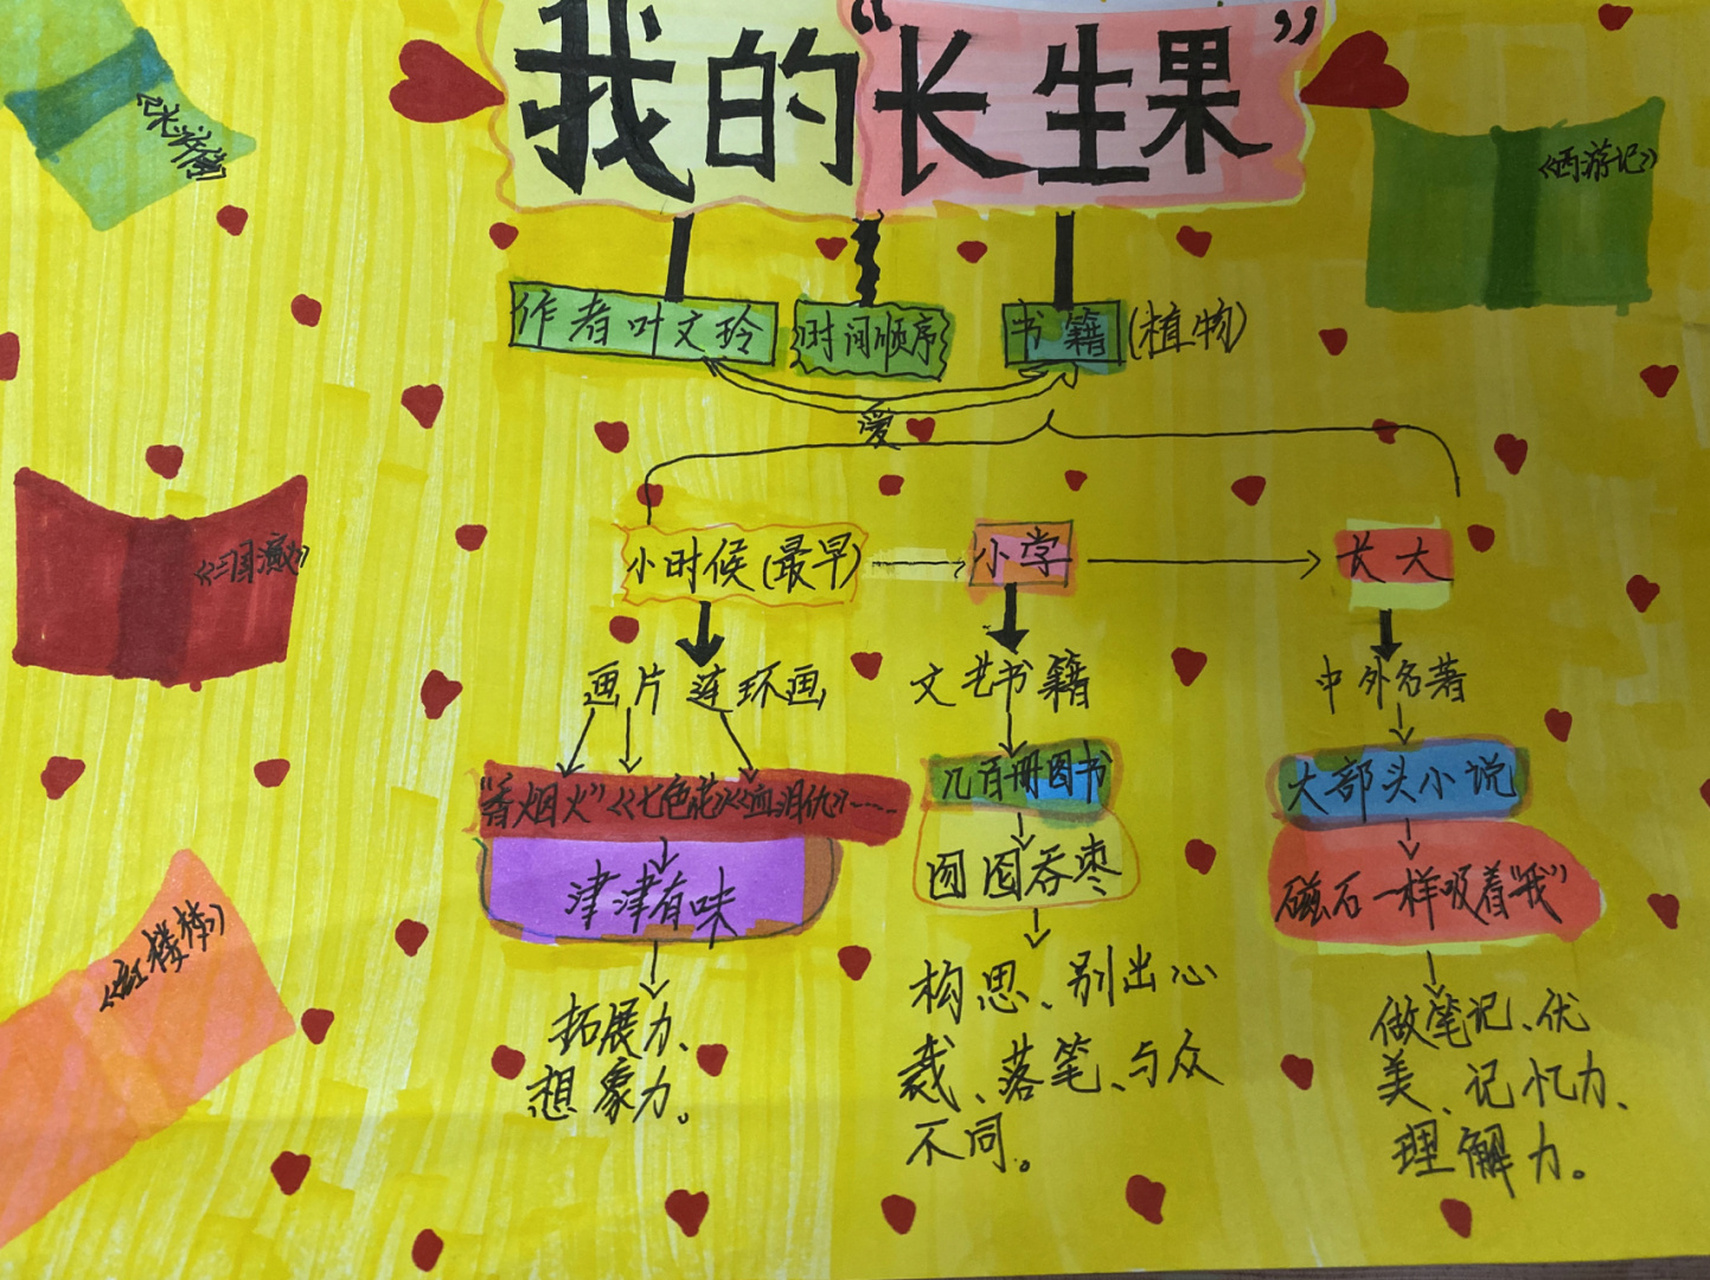 我的“长生果”
《水浒传》
《西游记》
作者叶文玲
时间顺序
书籍(植物)
爱
《三国演义》
小时候(最早)
小学
长大
画片 连环画
文艺书籍
中外名著
“香烟火”《七色花》《血泪仇》……
几百册图书
大部头小说
津津有味
囫囵吞枣
磁石一样吸着“我”
《红楼梦》
拓展力、
想象力。
构思、别出心
裁、落笔、与众
不同。
做笔记、优
美、记忆力、
理解力。